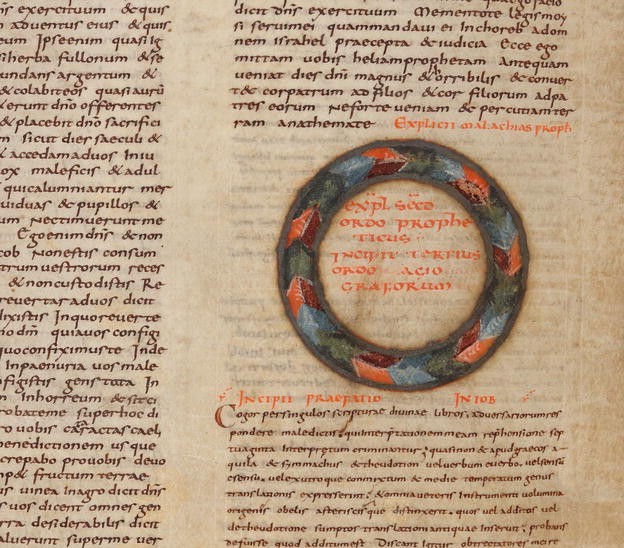 dñs exercituum & quis
aduentus eius & quis
eum Ipseenim quasi ig
siherba fullonum & se
undans argentum &
& colabiteos quasi aurū
& erunt dño offerentes
& placebit dño sacrifici
sicut dies saeculi &
& accedam aduos In iu
ox maleficis & adul
qui calumniantur mer
uiduas & pupillos &
um Nec timuerunt me
Ego enim dñs & non
cob Non estis consum
trum uestrorum reces
& non custodistis Re
reuertar aduos dicit
dixistis In quo reuerte
dm quia uos configi
quo confiximus te Inde
In paenuria uos male
figitis gens tota In
In horreum & sit ci
probate me super hoc di
ro uobis cataractas caeli
benedictionem usque
crepabo pro uobis deuo
fructum terrae
us uinea In agro dicit dñs
uos dicent omnes gen
rra desiderabilis dicit
aluerunt super me uer
dicit dñs exercituum Mementote legis moy
si serui mei quam mandaui ei In choreb ad om
nem israhel praecepta & iudicia Ecce ego
mittam uobis heliam prophetam Antequam
ueniat dies dñi magnus & orribilis & conuer
t& cor patrum ad filios & cor filiorum ad pa
tres eorum Ne forte ueniam & percutiam ter
ram anathemate Explicit malachias proph
expl secd
ordo prophe
ticus
Incipit tertius
ordo agio
graforum
Incipit praefatio In iob
Cogor per singulos scripturae diuinae libros aduersariorum res
pondere maledictis qui interpretationem meam reprehensione sep
tuaginta Interpretum criminantur quasi non & apud graecos a
quila & symmachus & theodotion uel uerbum e uerbo uel sensū
e sensu uel ex utroque commixtum & medie temperatum genus
translationis expresserint & omnia ueteris Instrumenti uolumina
origenis obelis asteriscisque distinxerit quos uel additos uel
de theodotione sumptos translationi antiquae Inseruit probans
defuisse quod additum est Discant igitur obtrectatores mei re